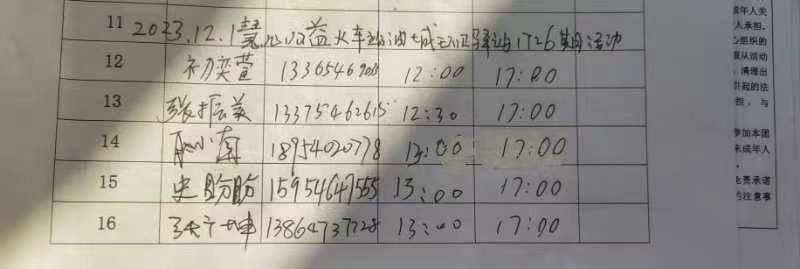 11 2023.12.1慧心公益火车站油城志愿驿站1726期活动
12 初奕萱 1336546 12:00 17:00
13 张振美 13375462615 12:30 17:00
14 南 18954020778 13:00 17:00
15 史盼盼 15954647555 13:00 17:00
16 坤 13864737728 13:00 17:00
成年人关
人承担,
心组织的
服从活动
,清理出
引起的法
担,与
参加本团
未成年人
负责承诺
的注意事